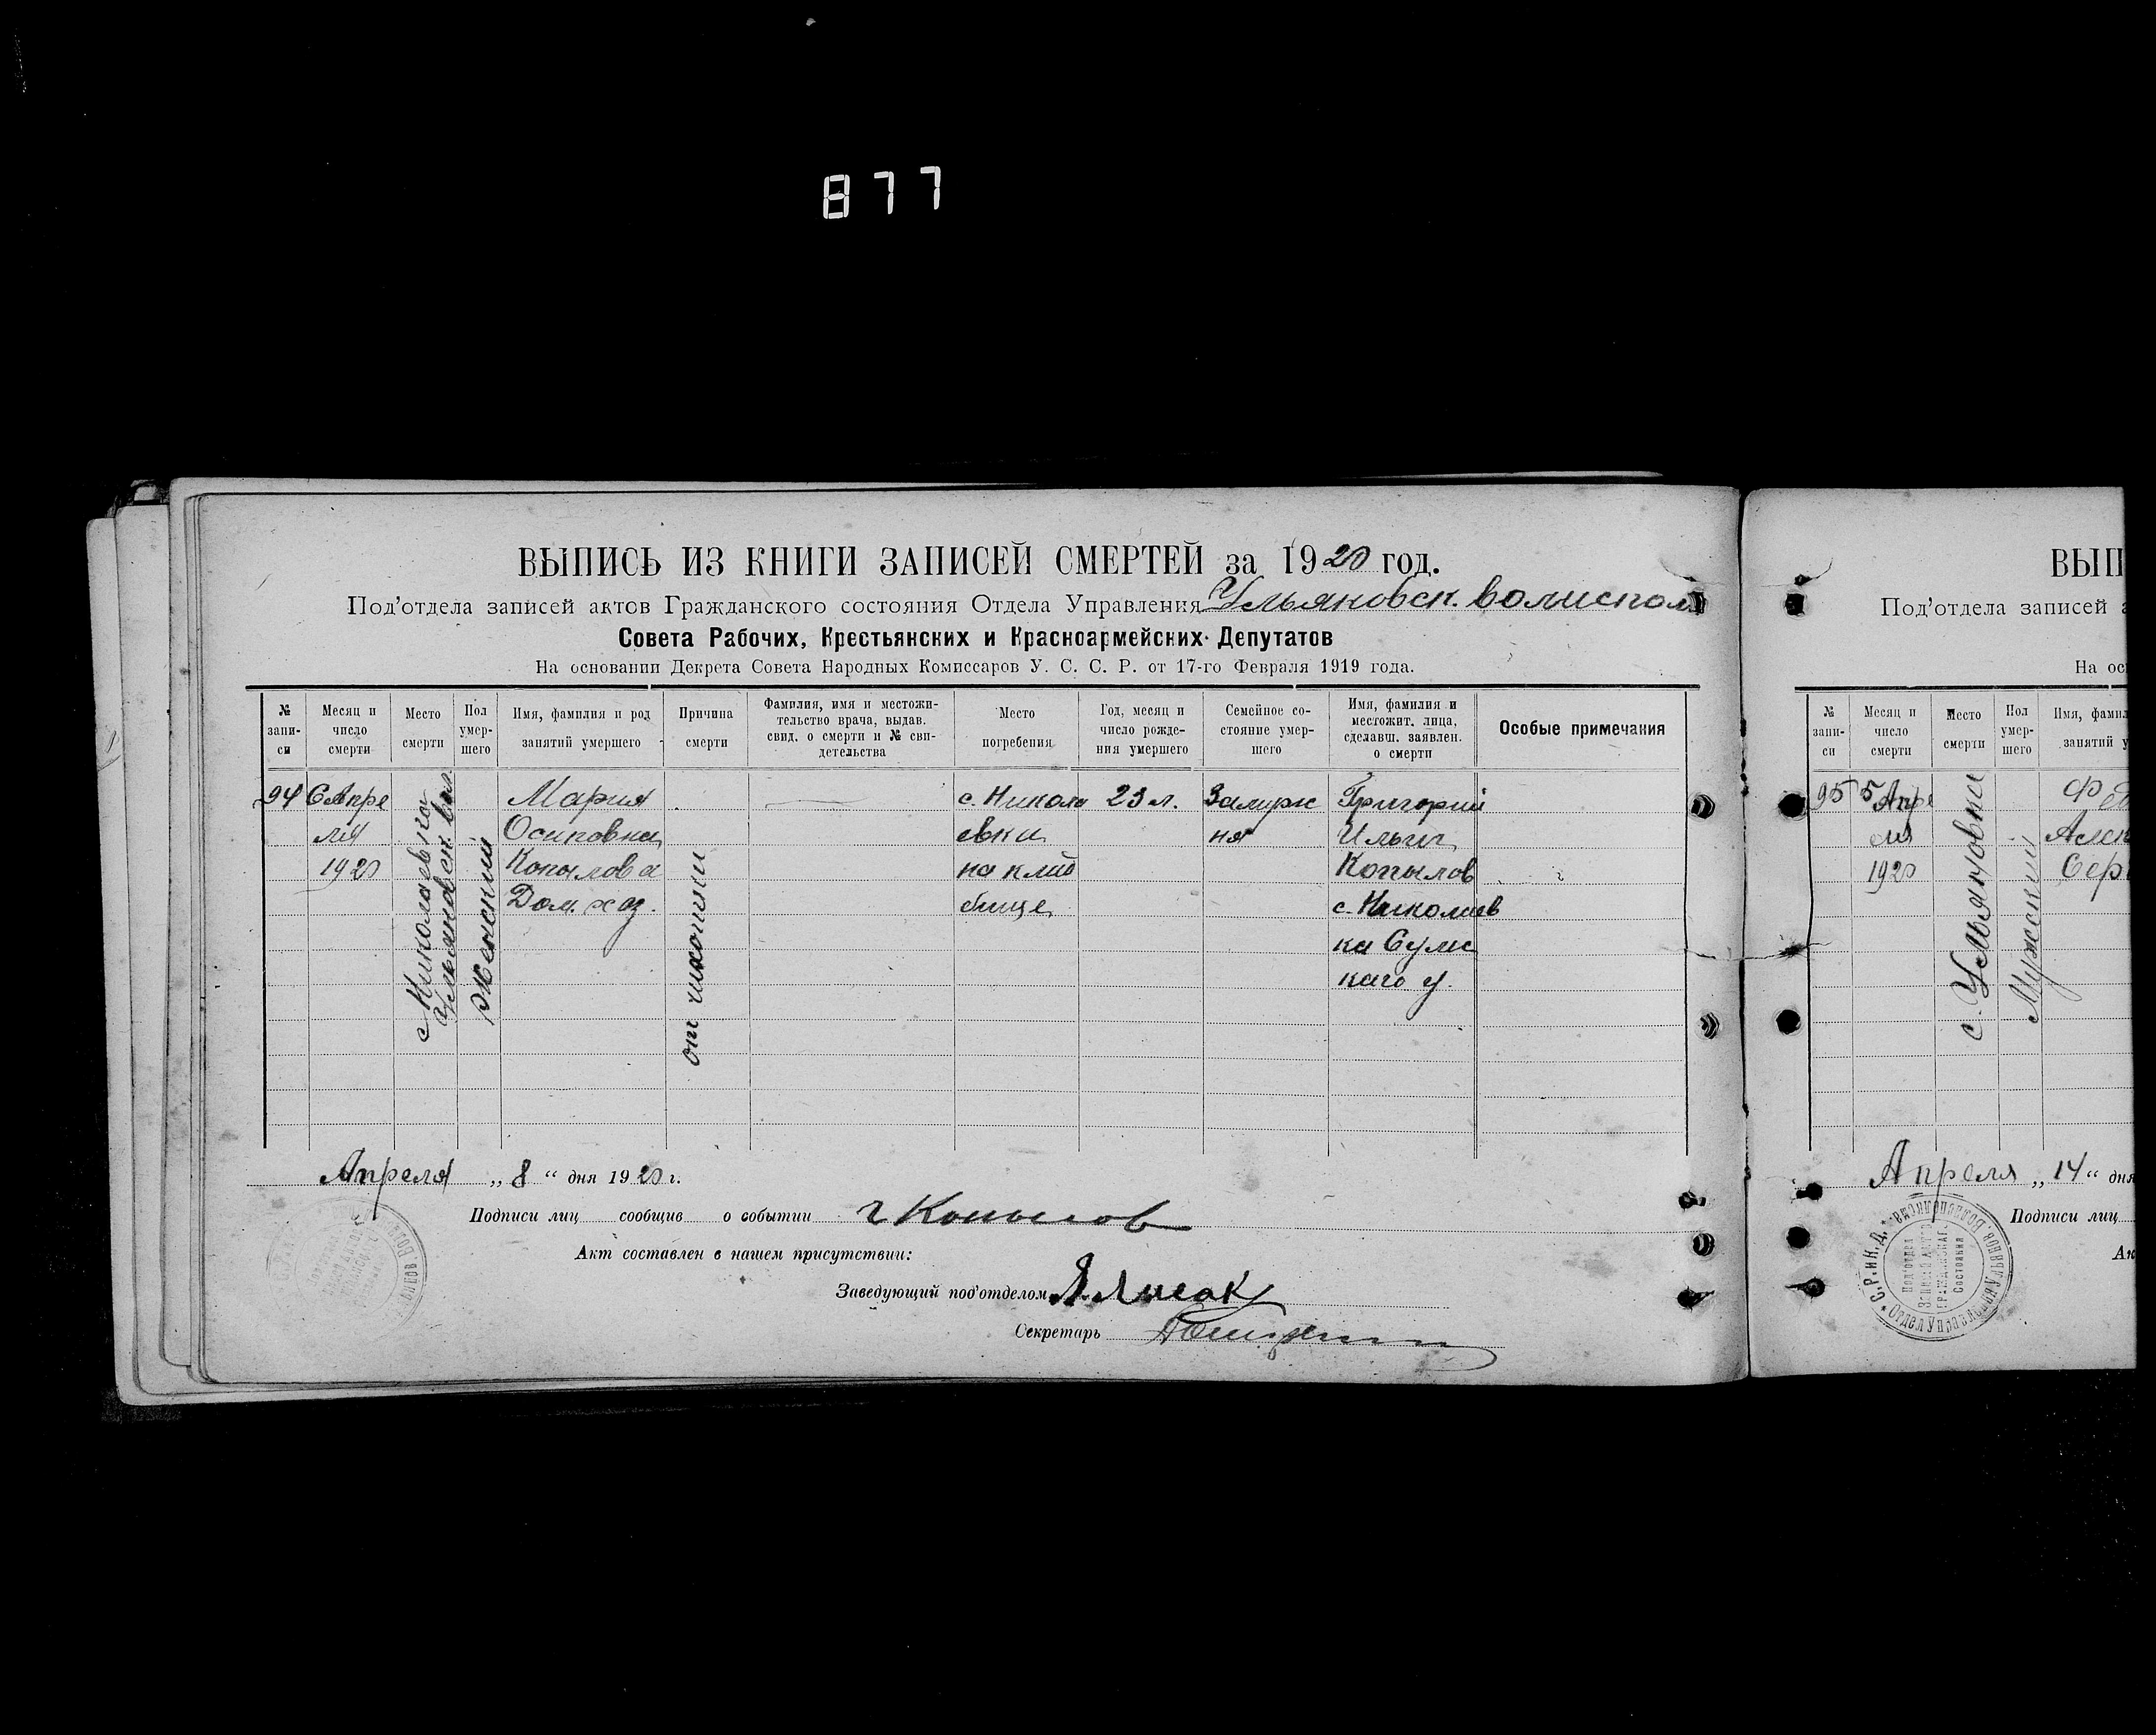 877
ВЫПИСЬ ИЗ КНИГИ ЗАПИСЕЙ СМЕРТЕЙ за 1920 год.
Под'отдела записей актов Гражданского состояния Отдела Управления Ульяновск. волиспол
Совета Рабочих, Крестьянских и Красноармейских Депутатов
На основании Декрета Совета Народных Комиссаров У. С. С. Р. от 17-го Февраля 1919 года.
№ запи-си
Месяц и число смерти
Место смерти
Пол умер-шего
Имя, фамилия и род занятий умершего
Причина смерти
Фамилия, имя и местожи-тельство врача, выдав. свид. о смерти и № сви-детельства
Место погребения
Год, месяц и число рожде-ния умершего
Семейное со-стояние умер-шего
Имя, фамилия и местожит. лица, сделавш. заявлен. о смерти
Особые примечания
94
6 Апре
ля
1920
с Николаевка
Ульяновск. вол.
Женский
Мария
Осиповна
Копылова
Дом. хоз.
от
с. Никола
евки
на клад
бище
23 л.
Замуж
ня
Григорий
Ильич
Копылов
с. Николаев
ка Сумс
каго у.
Апреля „8“ дня 1920 г.
Подписи лиц сообщив о событии Г Копылов
Акт составлен в нашем присутствии:
Заведующий под'отделом Лысак
Секретарь
ВЫП
Под'отдела записей а
На ос
№ запи-си
Месяц и число смерти
Место смерти
Пол умер-шего
Имя, фамил
занятий у
95
5 Апре
ля
1920
с. Ульяновки
Мужский
Алек
Сер
Апреля „14“ дня
Подписи лиц
Ак
С.Р.и К.Д.
Отдел Управ
Под'отдел
Записи актов
Гражданскаг
Состояния